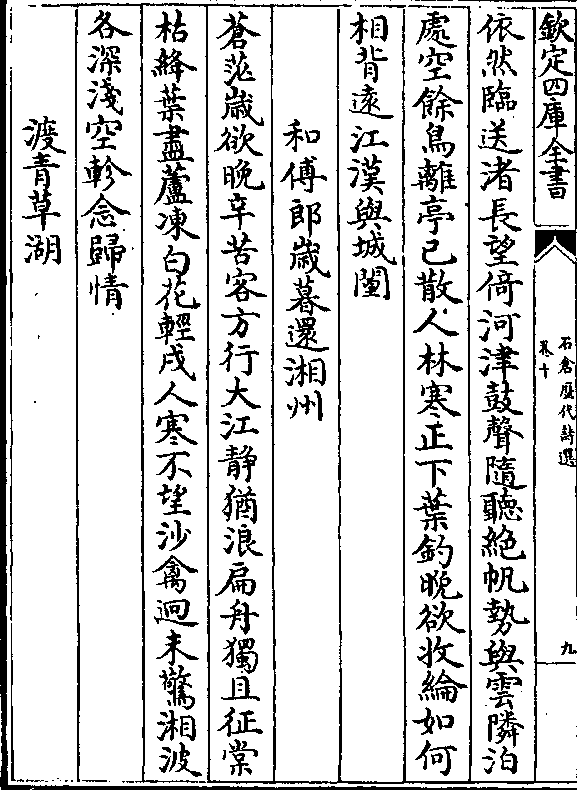 欽定四庫全書
石倉歷代詩選
卷十
九
依然臨送渚長望倚河津鼓聲隨聽絶帆勢與雲隣泊
處空餘鳥離亭已散人林寒正下葉釣晚欲收綸如何
相背遠江漢與城闉
和傅郎歳暮還湘州
蒼茫歳欲晚辛苦客方行大江静猶浪扁舟獨且征棠
枯絳葉盡蘆凍白花輕戍人寒不望沙禽迥未驚湘波
各深淺空軫念歸情
渡青草湖